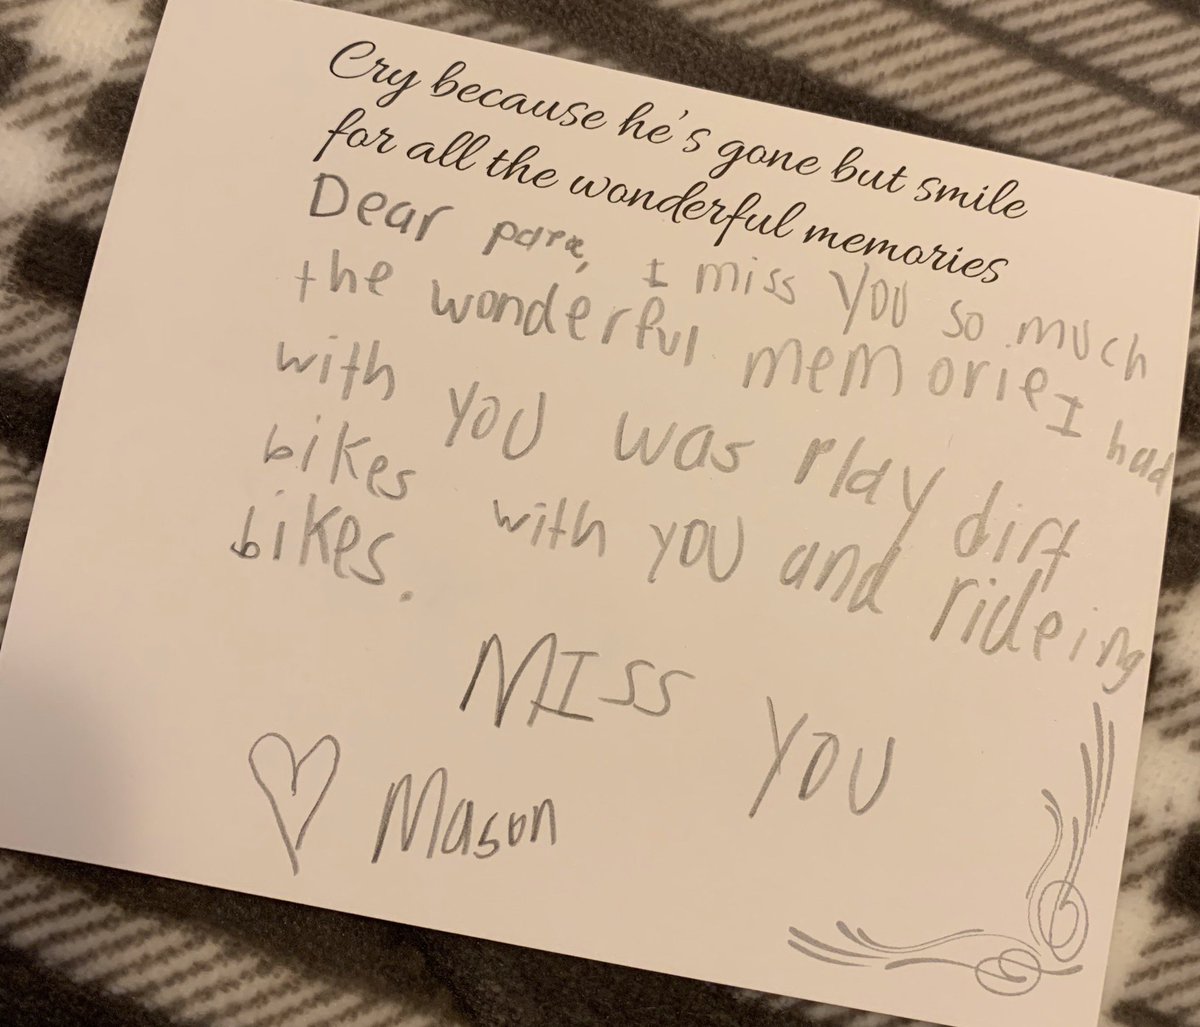 Cry because he's gone but smile
for all the wonderful memories
Dear para, I miss you so much
the wonderful memorie I had
with you was play dirt
bikes with you and rideing
bikes.
MIss you
Mason